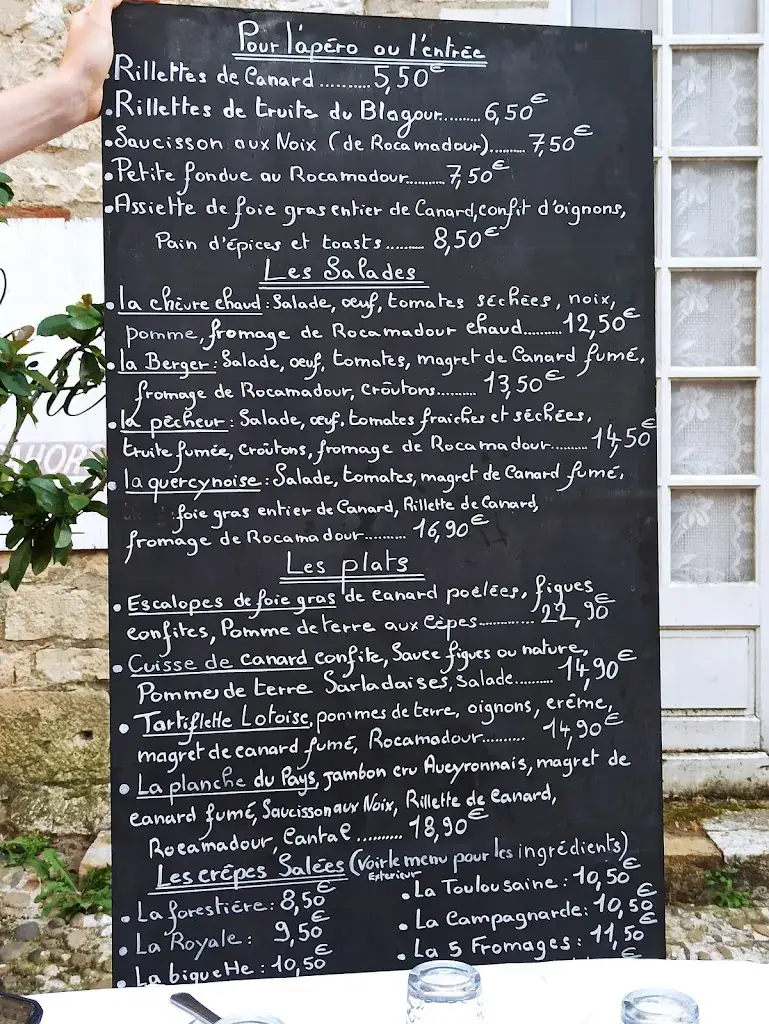 Pour l'apéro ou l'entrée
Rillettes de Canard..........5,50€
•Rillettes de truite du Blagour........6,50€
•Saucisson aux Noix (de Rocamadour).........7,50€
•Petite fondue au Rocamadour.........7,50€
•Assiette de foie gras entier de Canard, confit d'oignons,
Pain d'épices et toasts......... 8,50€
Les Salades
•la chèvre chaud: Salade, œuf, tomates séchées, noix,
pomme, fromage de Rocamadour chaud.........12,50€
•la Berger: Salade, œuf, tomates, magret de Canard fumé,
fromage de Rocamadour, croûtons......... 13,50€
•la pêcheur: Salade, œuf, tomates fraiches et séchées,
truite fumée, croûtons, fromage de Rocamadour.........14,50€
•la quercynoise: Salade, tomates, magret de Canard fumé,
foie gras entier de Canard, Rillette de Canard,
fromage de Rocamadour.......... 16,90€
Les plats
•Escalopes de foie gras de canard poêlées, figues
confites, Pomme de terre aux Cèpes............. 22,90€
•Cuisse de canard confite, Sauce figues ou nature,
Pommes de terre Sarladaises, salade......... 14,90€
•Tartiflette Lotoise, pommes de terre, oignons, crême,
magret de canard fumé, Rocamadour.......... 14,90€
•La planche du Pays, jambon cru Aveyronnais, magret de
canard fumé, Saucisson aux Noix, Rillette de Canard,
Rocamadour, Cantal.......... 18,90€
Les crêpes Salées (Voir le menu pour les ingrédients)
Exterieur
•La forestière: 8,50€
•La Royale: 9,50€
•La biquette: 10,50€
•La Toulousaine: 10,50€
•La Campagnarde: 10,50€
•La 5 Fromages: 11,50€
€
AHORS